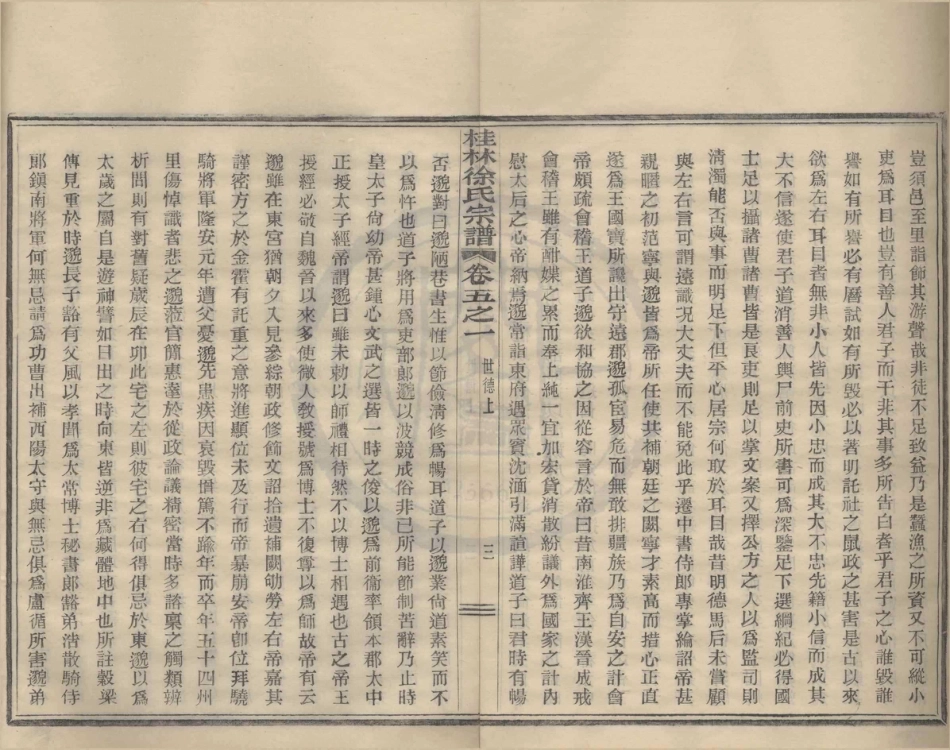 豈須邑至里詣飾其游聲哉非徒不足致益乃是蠶漁之所資又不可縱小
吏爲耳目也豈有善人君子而干非其事多所告白者乎君子之心誰毀誰
譽如有所譽必有所曆試如有所毀必以著明託社之鼠政之甚害是古以來
欲爲左右耳目者無非小人皆先因小忠而成其大不忠先籍小信而成其
大不信遂使君子道消善人輿尸前史所書可爲深鑒足下選綱紀必得國
士足以攝諸曹諸曹皆是良吏則足以掌文案又擇公方之人以爲監司則
清濁能否與事而明足下但平心居宗何取於耳目哉昔明德馬后未嘗顧
與左右言可謂遠識况大丈夫而不能免此乎遷中書侍郎專掌綸詔帝甚
親暱之初范甯與邈皆爲帝所任使共補朝廷之闕甯才素高而措心正直
遂爲王國寶所讒出守遠郡邈孤宦易危而無敢排疆族乃爲自安之計會
帝頗疏會稽王道子邈欲和協之因從容言於帝曰昔南淮齊王漢晉成戒
會稽王雖有酣媟之累而奉上純一宜加宏貸消散紛議外爲國家之計內
慰太后之心帝納焉邈常詣東府遇衆賓沈湎引滿諠譁道子曰君時有暢
桂林徐氏宗譜 卷五之一 世德上 三
否邈對曰邈陋巷書生惟以節儉清修爲暢耳道子以邈業尙道素笑而不
以爲忤也道子將用爲吏部郞邈以波競成俗非已所能節制苦辭乃止時
皇太子尙幼帝甚鍾心文武之選皆一時之俊以邈爲前衞率領本郡太中
正授太子經帝謂邈曰雖未勅以師禮相待然不以博士相遇也古之帝王
授經必敬自魏晉以來多使微人敎授號爲博士不復尊以爲師故帝有云
邈雖在東宮猶朝夕入見參綜朝政修飾文詔拾遺補闕劬勞左右帝嘉其
謹密方之於金霍有託重之意將進顯位未及行而帝暴崩安帝卽位拜驍
騎將軍隆安元年遭父憂邈先患疾因哀毀增篤不踰年而卒年五十四州
里傷悼識者悲之邈蒞官簡惠達於從政論議精密當時多諮稟之觸類辨
析問則有對舊疑歲辰在卯此宅之左則彼宅之右何得俱忌於東邈以爲
太歲之屬自是遊神譬如日出之時向東皆逆非爲藏體地中也所註穀梁
傳見重於時邈長子豁有父風以孝聞爲太常博士秘書郞豁弟浩散騎侍
郞鎭南將軍何無忌請爲功曹出補西陽太守與無忌俱爲盧循所害邈弟